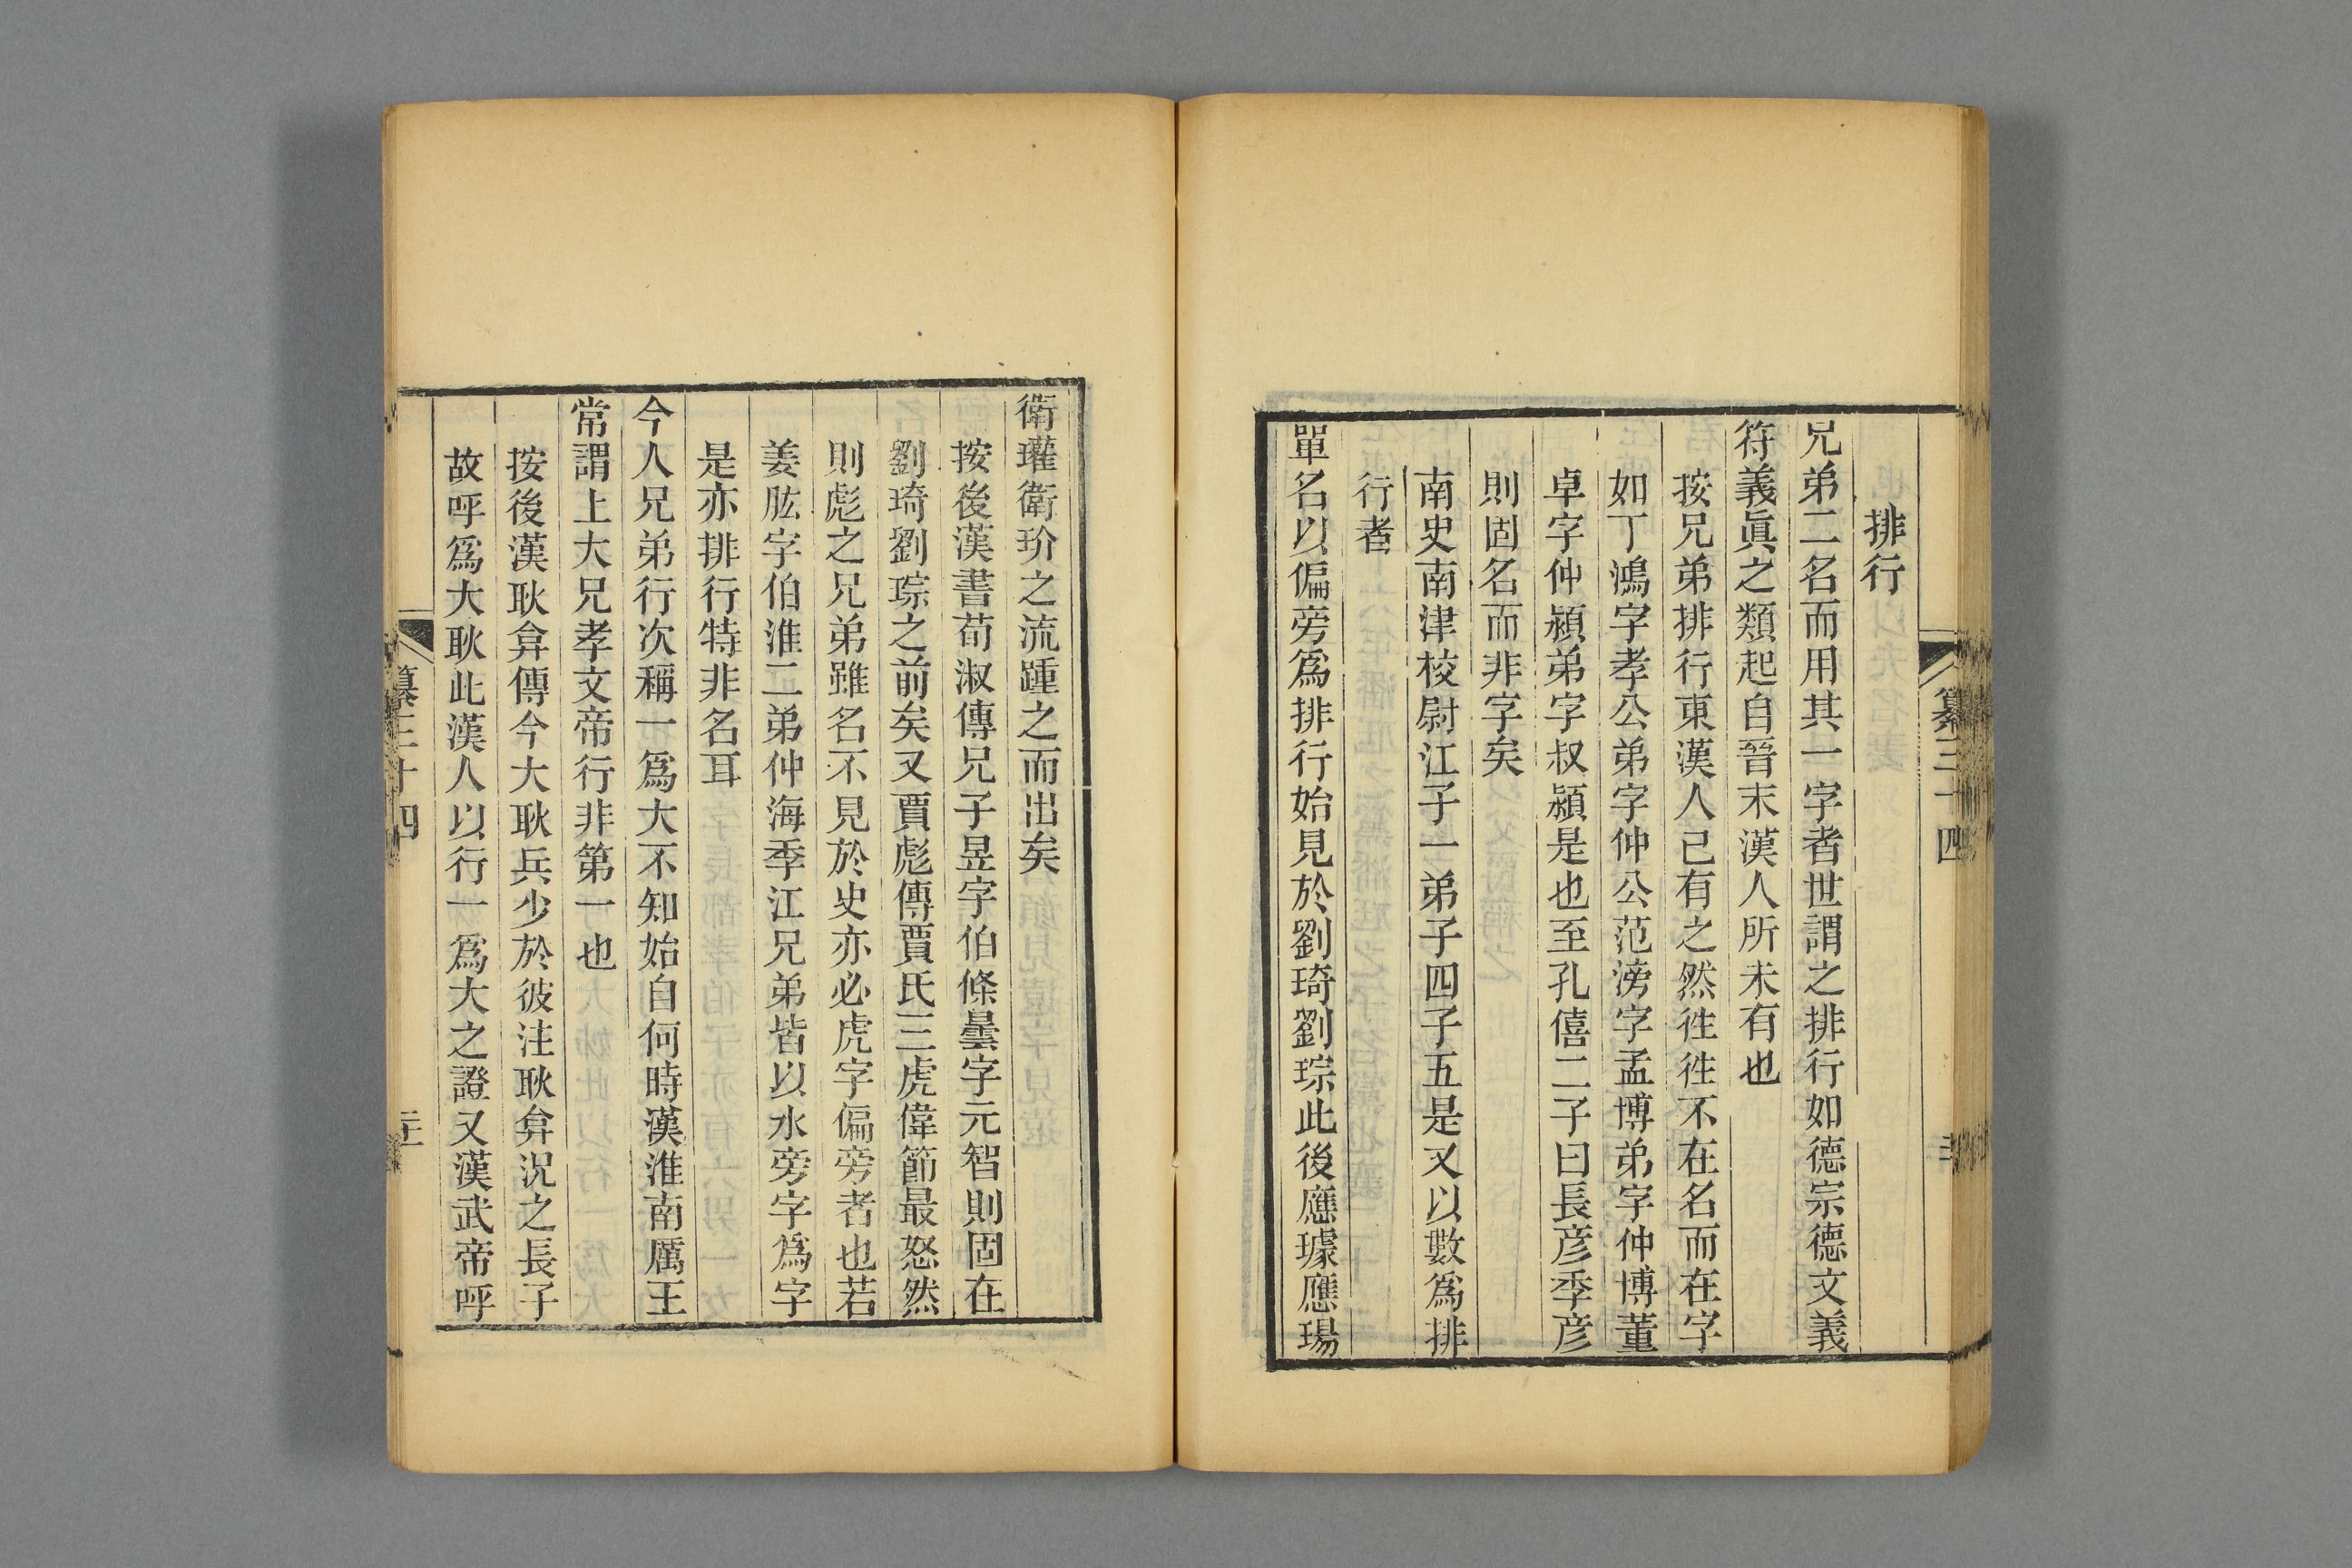 排行
兄弟二名而用其一字者世謂之排行如德宗德文義
符義眞之類起自晉末漢人所未有也
按兄弟排行東漢人已有之然徃徃不在名而在字
如丁鴻字孝公弟字仲公范滂字孟博弟字仲博董
卓字仲潁弟字叔潁是也至孔僖二子曰長彥季彥
則固名而非字矣
南史南津校尉江子一弟子四子五是又以數爲排
行者
單名以偏旁爲排行始見於劉琦劉琮此後應璩應瑒
衛瓘衛玠之流踵之而出矣
按後漢書荀淑傳兄子昱字伯條曇字元智則固在
劉琦劉琮之前矣又賈彪傳賈氏三虎偉節最怒然
則彪之兄弟雖名不見於史亦必虎字偏旁者也若
姜肱字伯淮二弟仲海季江兄弟皆以水旁字爲字
是亦排行特非名耳
今人兄弟行次稱一爲大不知始自何時漢淮南厲王
常謂上大兄孝文帝行非第一也
按後漢耿弇傳今大耿兵少於彼注耿弇況之長子
故呼爲大耿此漢人以行一爲大之證又漢武帝呼
纂三十四